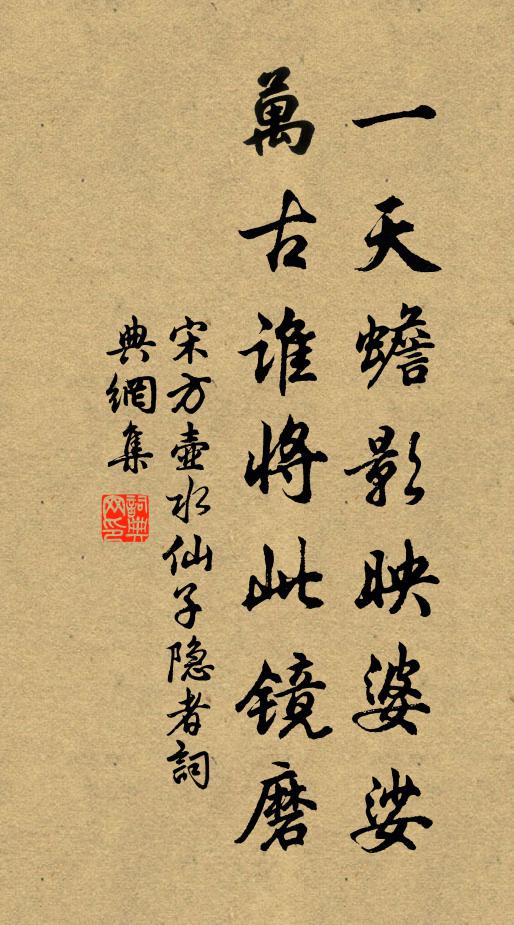 一天蟾影映婆娑
萬古谁将此镜磨
宋方壶水仙子隐者詞
典網集
詞典网印